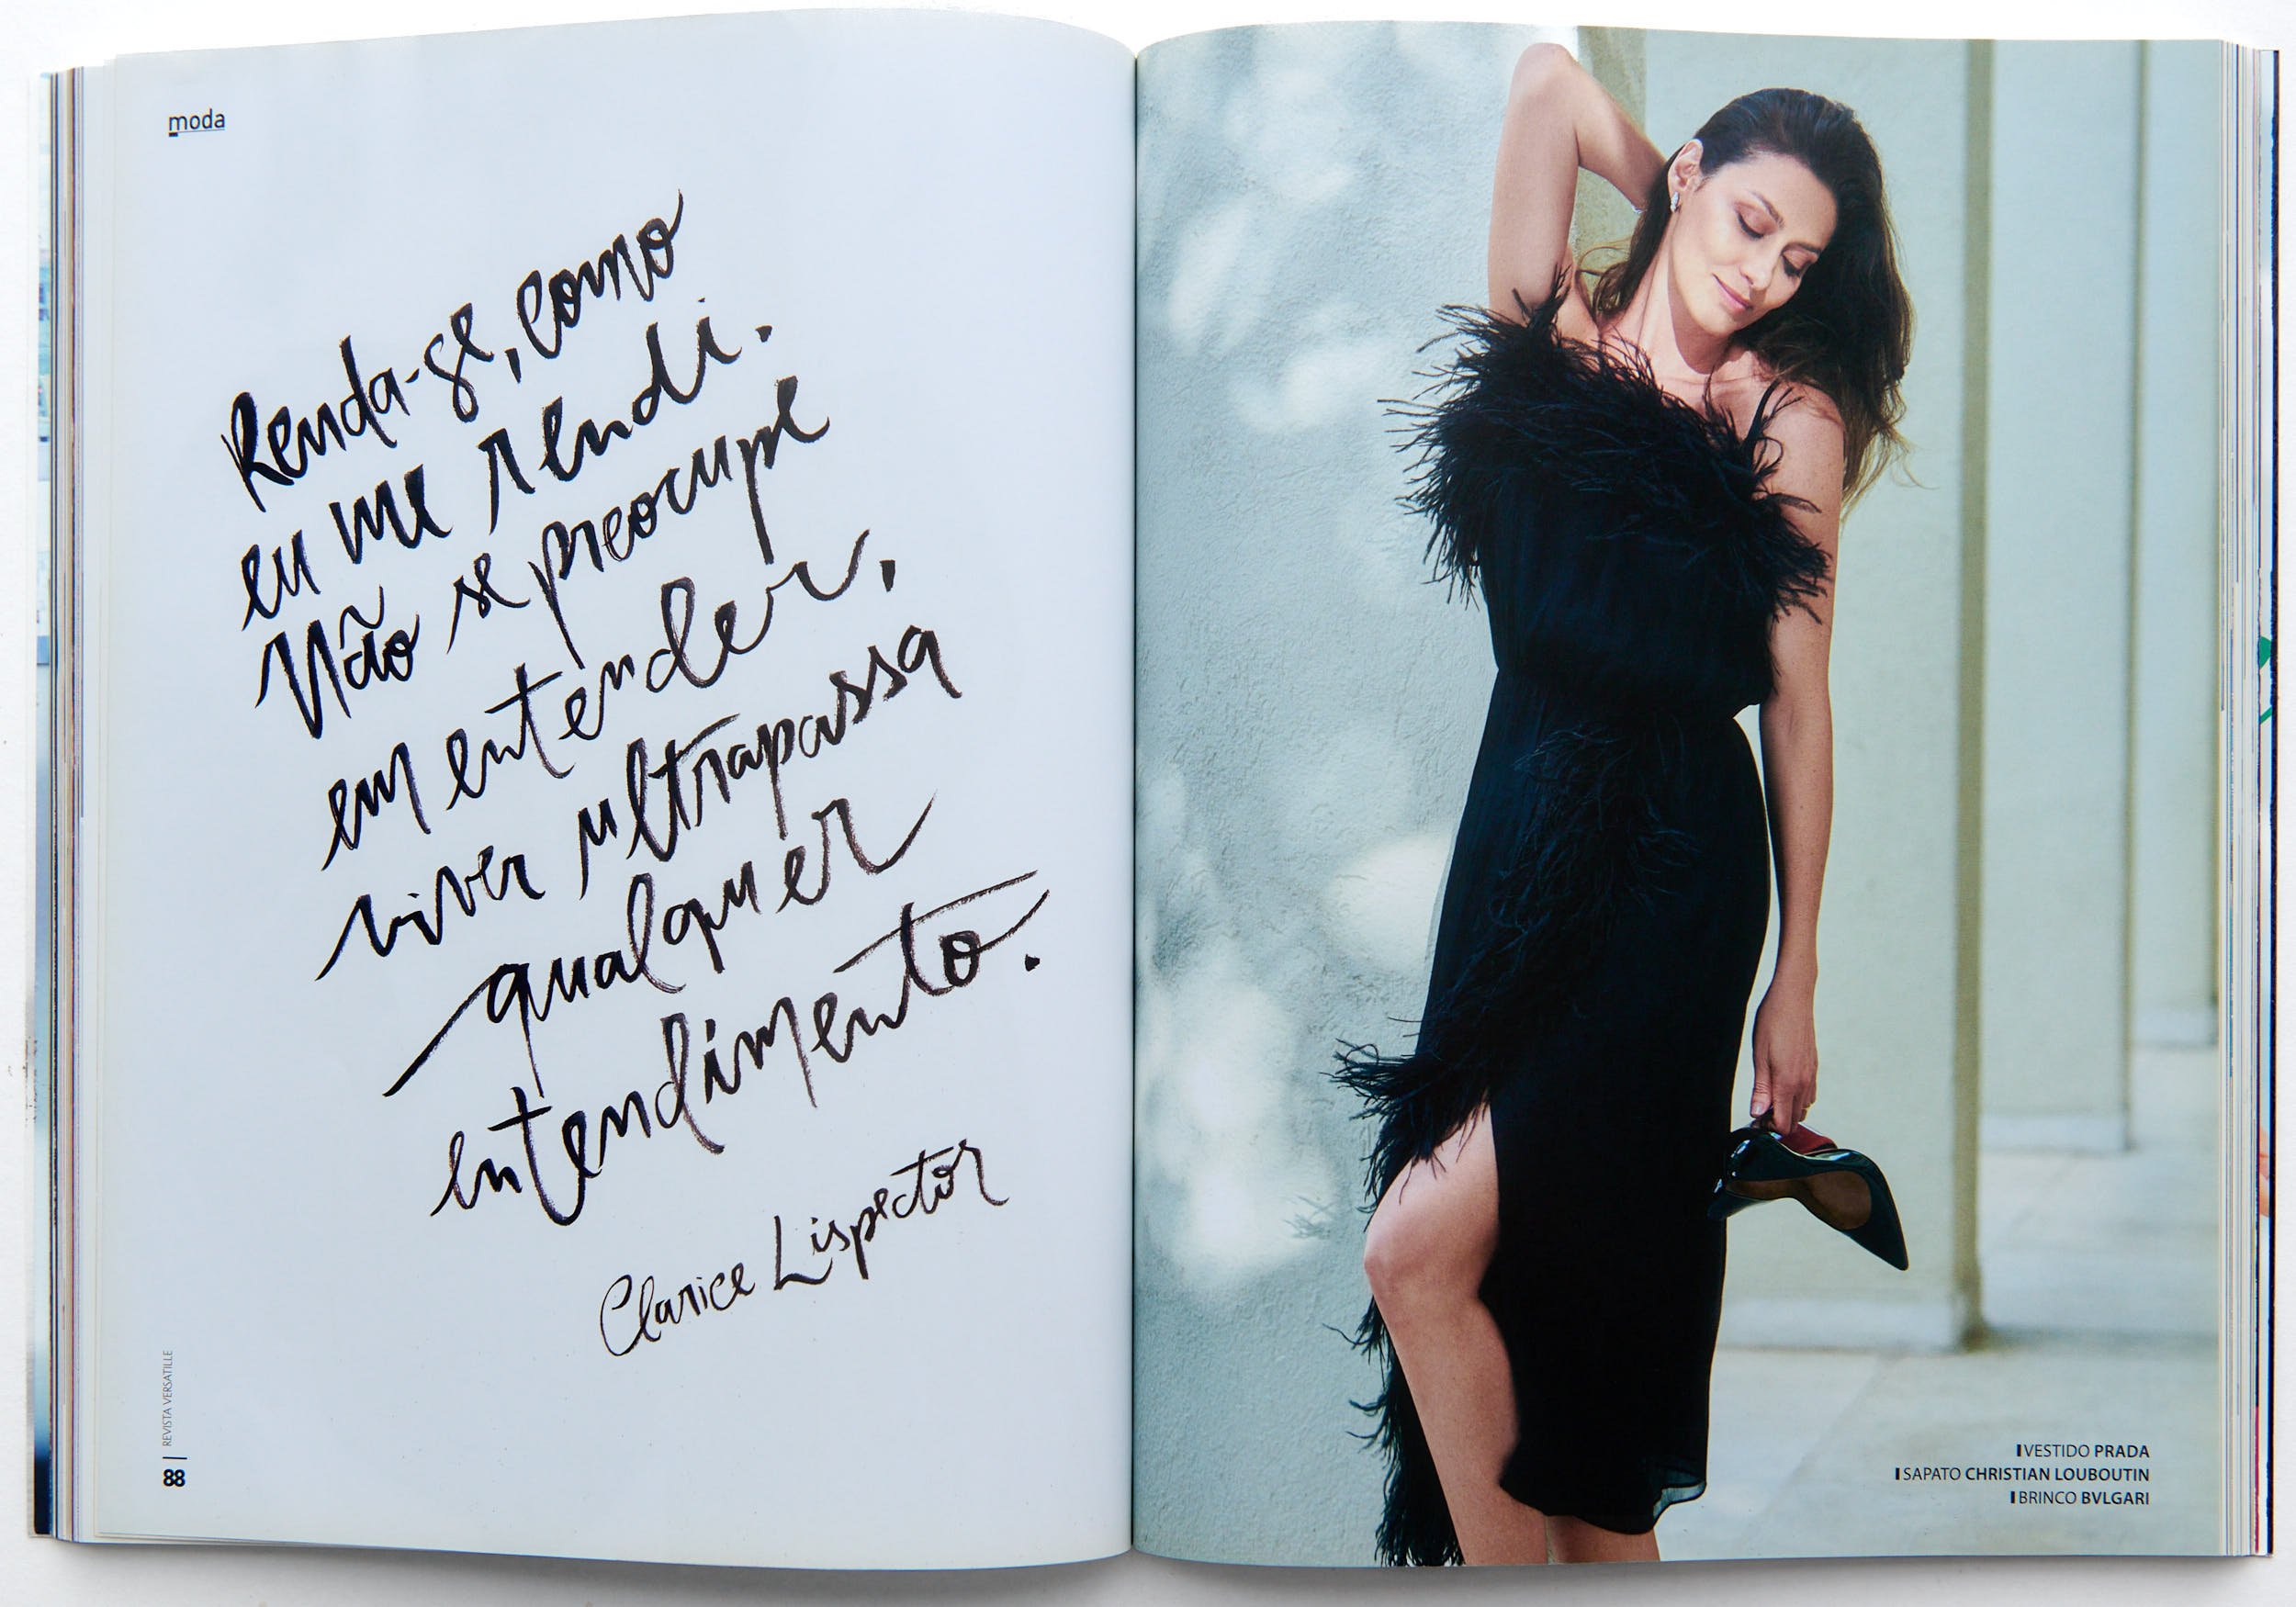 moda
Renda-se, como
eu me rendi.
Não se preocupe
em entender,
viver ultrapassa
qualquer
entendimento.
Clarice Lispector
REVISTA VERSATILLE
88
VESTIDO PRADA
SAPATO CHRISTIAN LOUBOUTIN
BRINCO BVLGARI